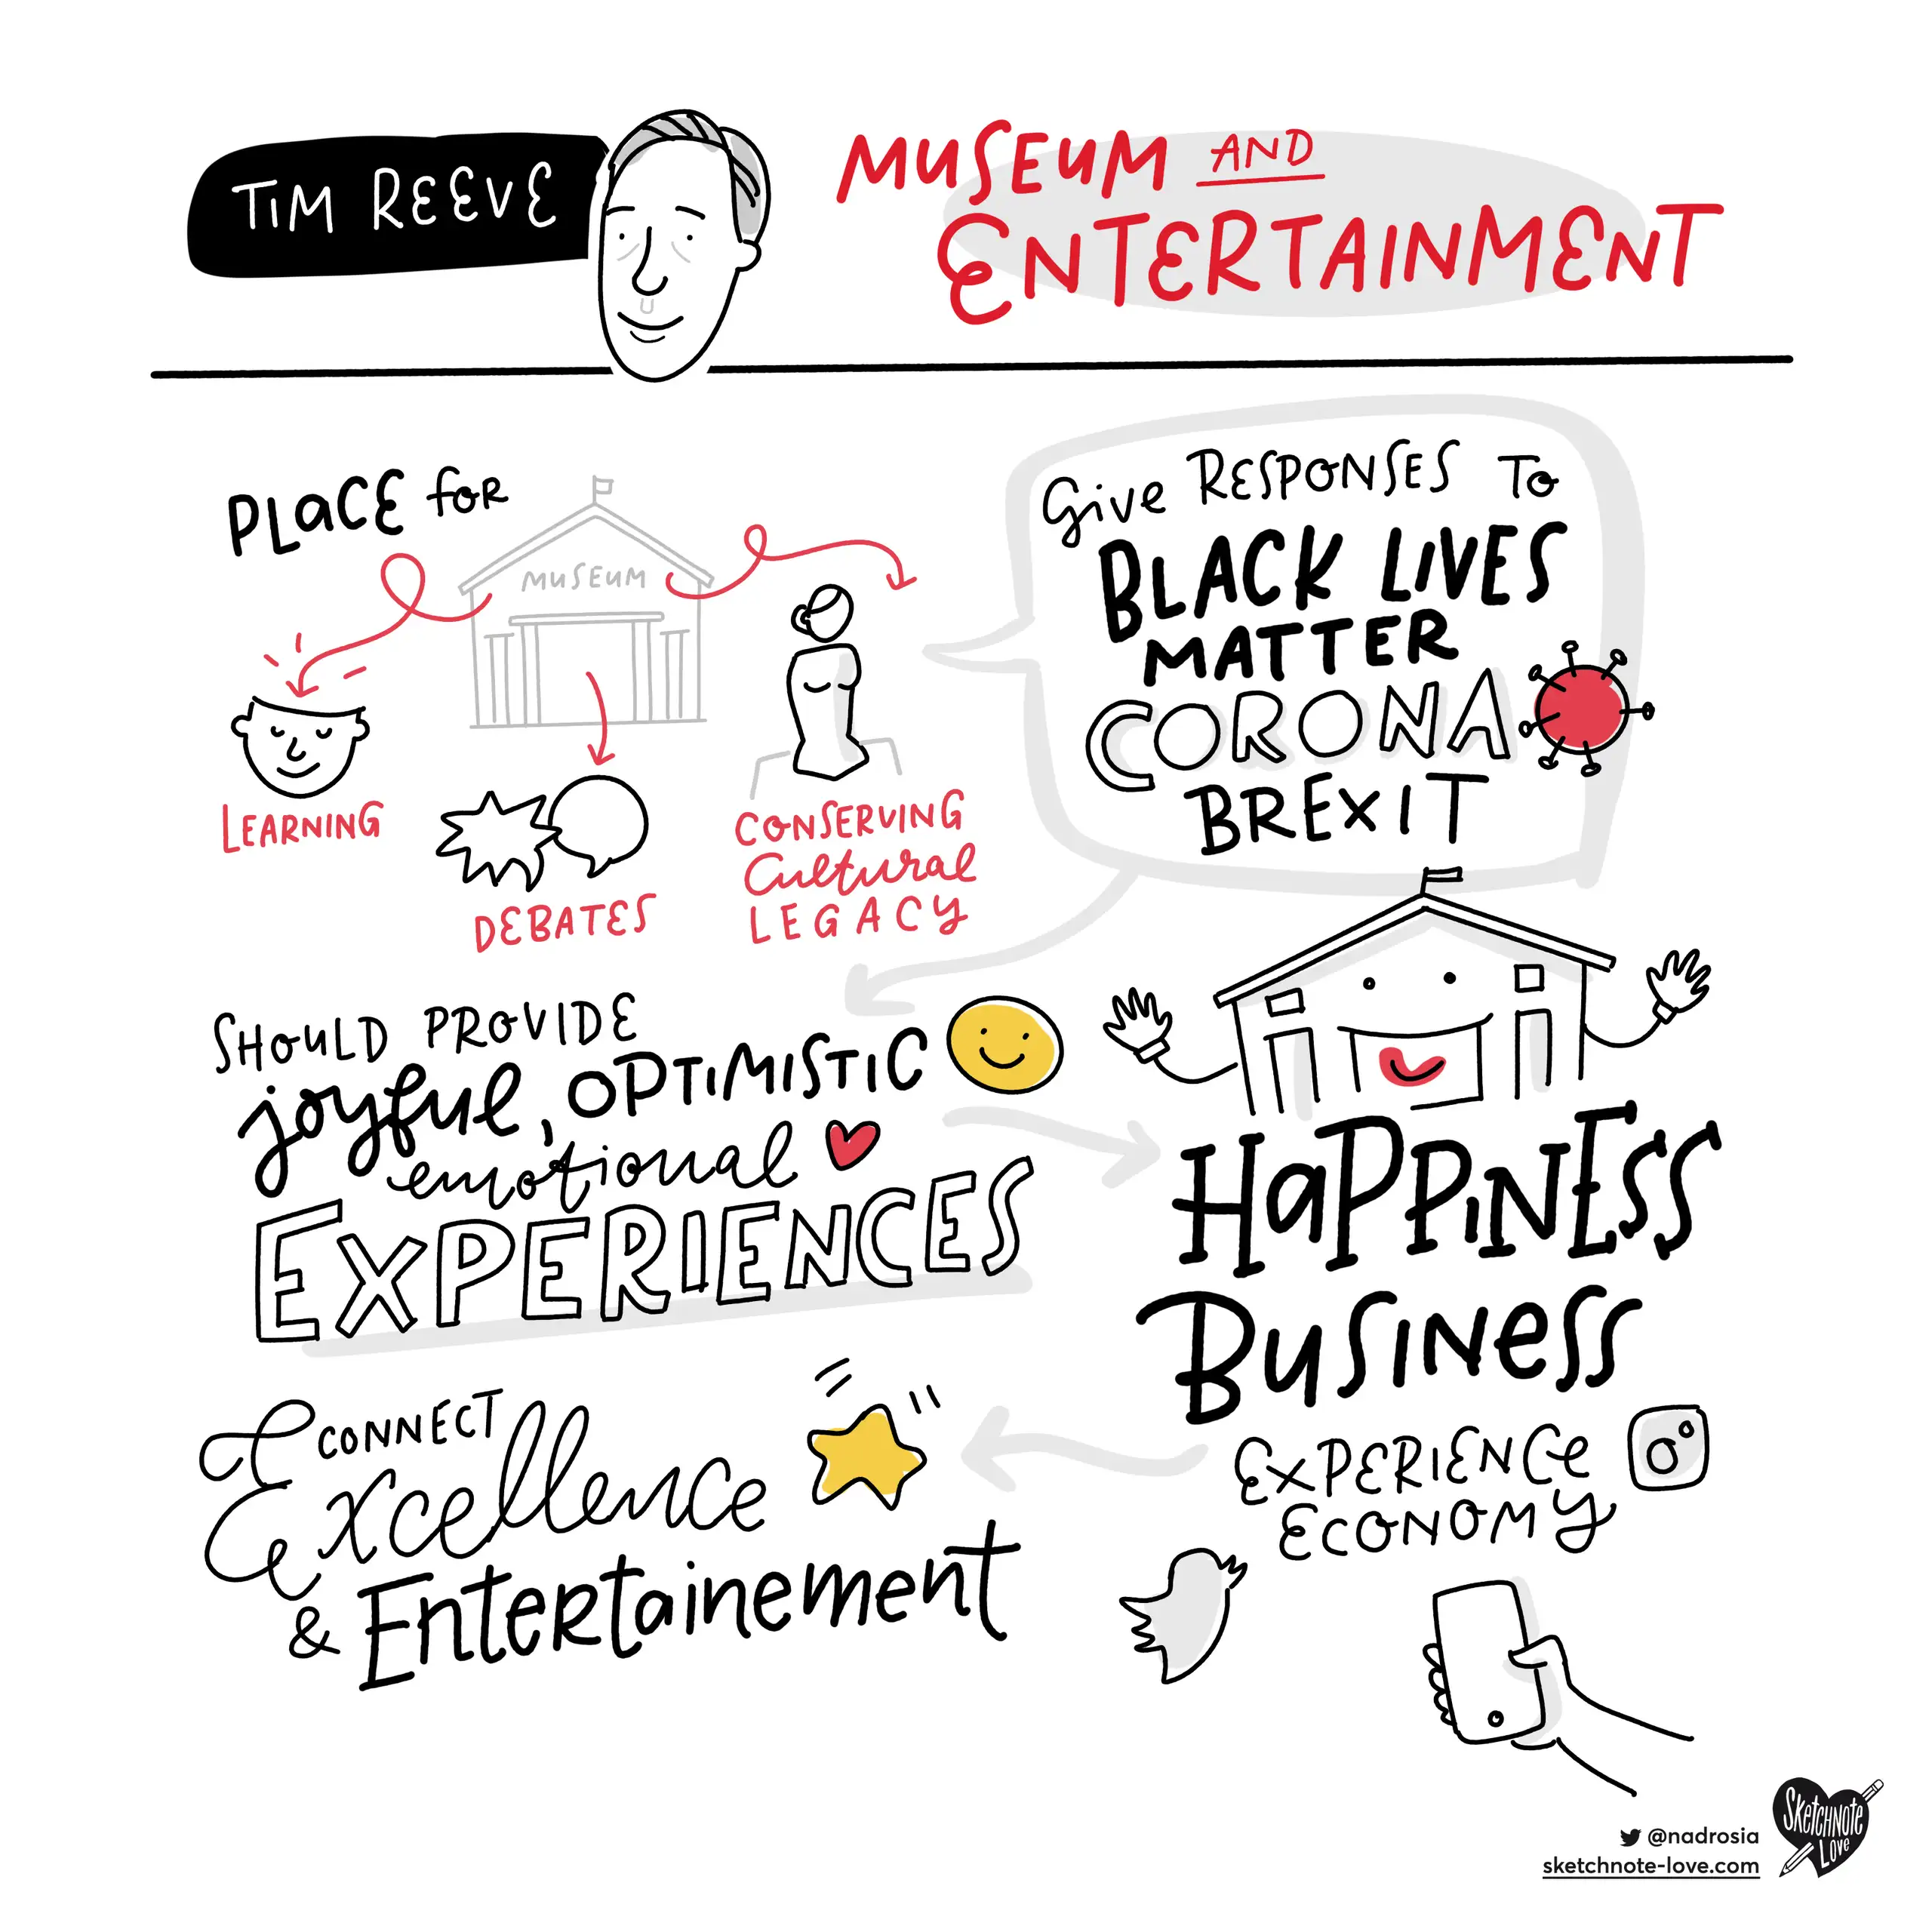 TIM REEVE
MUSEUM AND
ENTERTAINMENT
PLACE for
MUSEUM
LEARNING
DEBATES
CONSERVING
Cultural
LEGACY
Give RESPONSES TO
BLACK LIVES
MATTER
CORONA
BREXIT
SHOULD PROVIDE
joyful, OPTIMISTIC
emotional
EXPERIENCES
HaPPiNESS
BUSINESS
EXPERIENCE
ECONOMY
CONNECT
Excellence
& Entertainement
@nadrosia
sketchnote-love.com
SKETCHNOTE
LOVE